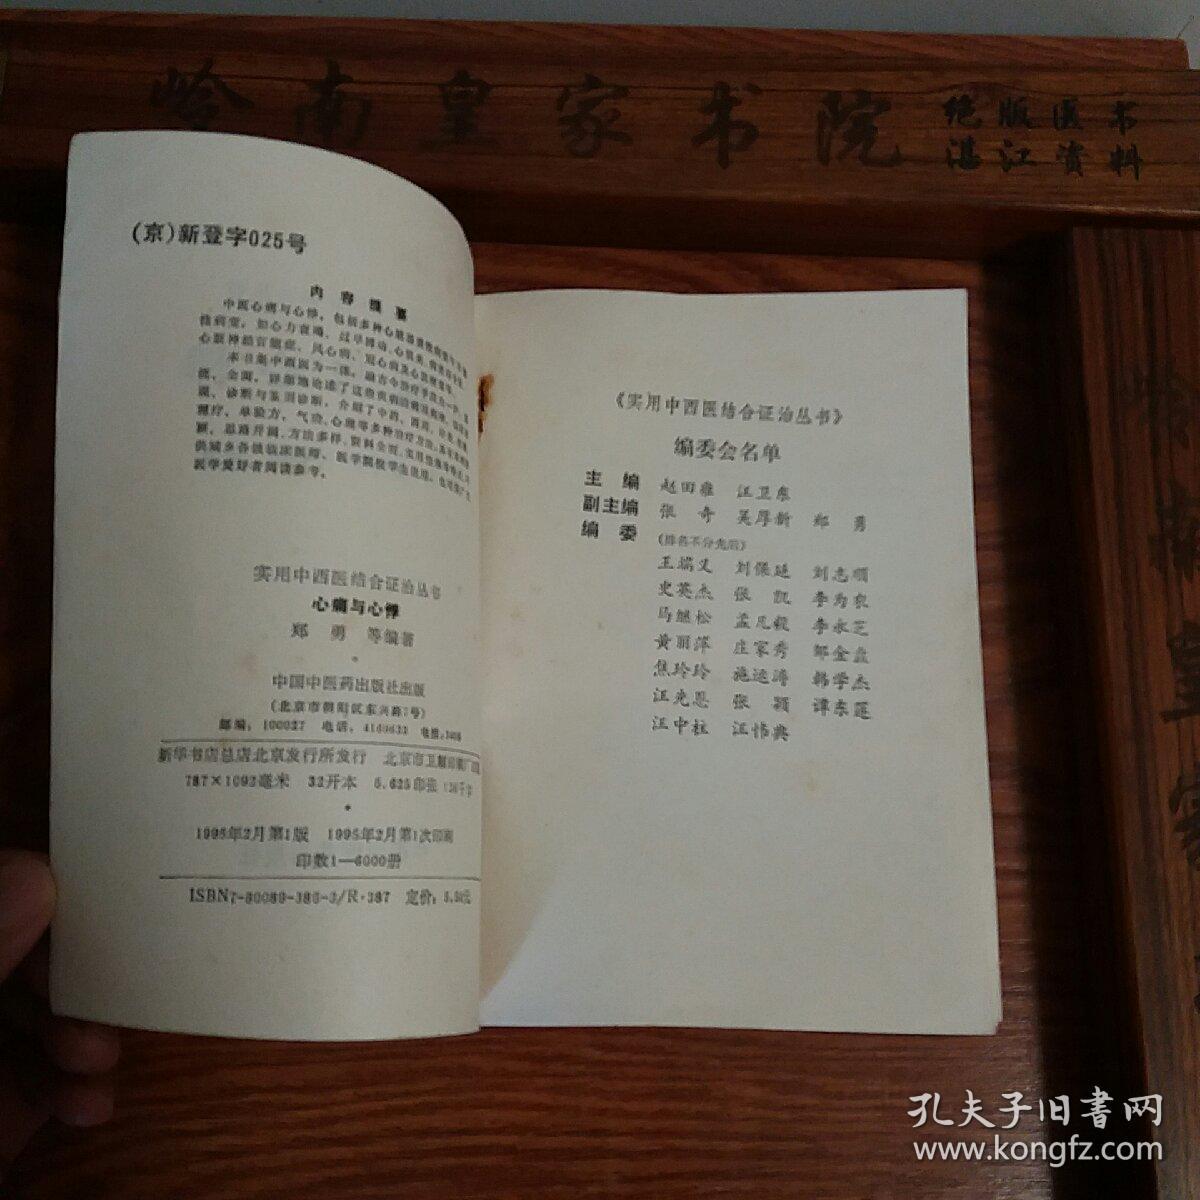 岭南皇家书院
绝版医书
湛江资料
(京)新登字025号
内容提要
中医心痛与心悸，包括多种心脏
心脏神经官能症、风心病、冠心病及心肌梗塞等。
本书集中西医为一体，融古今治疗手段为一炉，
流、全面、详细地论述了这些疾病
诊断与鉴别诊断，介绍了中药、西药、
理疗、单验方、气功、心理等多种治疗方法，
思路开阔、方法多样、资料全面、实用性
供城乡各级临床医师、医学院校学生使用，也可供广大
医学爱好者阅读参考。
实用中西医结合证治丛书
心痛与心悸
郑勇 等编著
*
中国中医药出版社出版
(北京市朝阳区东兴路7号)
邮编：100027 电话：
新华书店总店北京发行所发行 北京市卫顺印刷厂印刷
787×1092毫米 32开本 5.625印张
*
1995年2月第1版 1995年2月第1次印刷
印数1—6000册
ISBN7-80089-386-3/R·387 定价：
《实用中西医结合证治丛书》
编委会名单
主编 赵田雍 汪卫东
副主编 张奇 吴厚新 郑勇
编委 (排名不分先后)
王瑞义 刘保延 刘志顺
史英杰 张凯 李为农
马继松 孟凡毅 李永芝
黄丽萍 庄家秀 邹金盘
焦玲玲 施运涛 韩学杰
汪光恩 张颖 谭东莲
汪中柱 汪伟典
孔夫子旧書网
www.kongfz.com